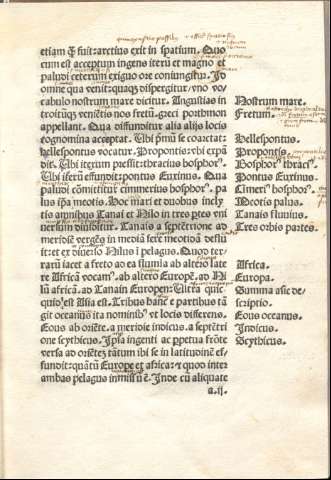 etiam q̃ fuit: arctius exit in spatium. Quo
cum est acceptum ingens iterũ et magno et
paludi ceterum exiguo ore coniungitur. Id
omne qua venit: quaq̃s dispergitur, vno vo/
cabulo nostrum mare dicitur. Angustias in
troitũq̃s veniẽtis nos fretũ, greci porthmon
appellant. Qua diffunditur alia alijs locis
cognomina acceptat. Ubi pmũ se coarctat:
hellespontus vocatur. Propontis: vbi expã
dit. Ubi iterum pressit: thracius bosphorꝰ.
Ubi iterũ effundit: pontus Euxinus. Qua
paludi cõmittitur cimmerius bosphorꝰ. pa
lus ip̃a meotis. Hoc mari et duobus incly
tis amnibus Tanai et Nilo in tres ptes vni
uersum diuiditur. Tanais a septẽtrione ad
meridiẽ vergẽs in mediã fere meotida deflu
it: et ex diuerso Nilus ĩ pelagus. Quod ter/
rarũ iacet a freto ad ea flumia ab altero late
re Africã vocamꝰ. ab altero Europẽ. ad Ni
lũ africã. ad Tanain Europen: Ultra quic
quid est Asia est. Tribus hanc e partibus tã
git oceanus ita nominibꝰ vt locis differens.
Eous ab oriẽte. a meridie indicus. a septẽtri
one scythicus. Ip̃a ingenti ac ppetua frõte
versa ad oriẽtẽ: tãtum ibi se in latitudinẽ ef/
fundit: quãtũ Europe et africa: et quod inter
ambas pelagus inmissũ ẽ. Inde cũ aliquate
a.ij.
Nostrum mare.
Fretum.
Hellespontus.
Propontis.
Bosphorꝰ thraciꝰ.
Pontus Euxinus.
Cimeriꝰ bosphorꝰ.
Meotis palus.
Tanais fluuius.
Tres orbis partes.
Africa.
Europa.
Summa asie de/
scriptio.
Eous oceanus.
Indicus.
Scythicus.